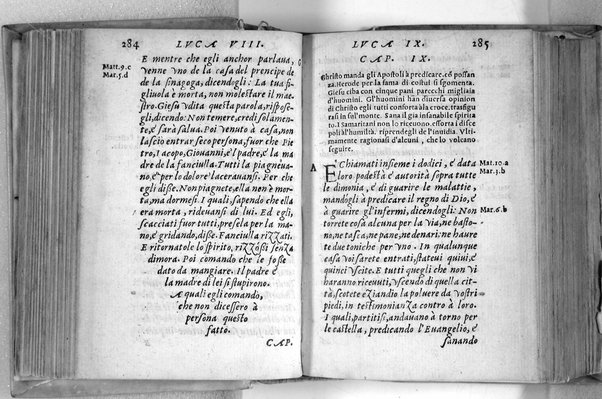 284 LVCA VIII.
Matt.9.c
Mar.5.d
E mentre che egli anchor parlaua,
venne vno de la casa del prencipe de
de la sinagoga, dicendogli: La tua fi
gliuola è morta, non molestare il mae
stro. Giesu vdita questa parola, rispose
gli, dicendo: Non temere, credi solamen
te, e sarà salua. Poi venuto à casa, non
lasciò entrar seco persona, fuor che Pie
tro, Iacopo, Giouanni, e'l padre, e la ma
dre de la fanciulla. Tutti la piagneua
no, e per lo dolore lacerauansi. Per che
egli disse. Non piagnete, ella non è mor
ta, ma dormesi. I quali, sapendo che ella
era morta, rideuansi di lui. Ed egli,
scacciati fuor tutti, presela per la ma
no, e gridando, disse: Fanciulla rizzati.
E ritornatole lo spirito, rizzossi senza
dimora. Poi comando che le fosse
dato da mangiare. Il padre e
la madre di lei si stupirono.
A quali egli comando,
che non dicessero à
persona questo
fatto.
CAP.
LVCA IX. 285
CAP. IX.
Christo manda gli Apostoli à predicare, cō possan
za. Herode per la fama di costui si sgomenta.
Giesu ciba con cinque pani parecchi migliaia
d'huomini. Gl'huomini han diuersa opinion
di Christo egli tutti conforta à la croce, trasfigu
rasi in sul monte. Sana il gia insanabile spirita
to. I Samaritani non lo riceuono. essorta i disce
poli à l'humiltà. riprendegli de l'inuidia. Vlti-
mamente ragionasi d'alcuni, che lo volcano
seguire.
A
E Chiamati insieme i dodici, è data
loro podestà e autorità sopra tutte
le dimonia, e di guarire le malattie,
mandogli à predicare il regno di Dio, e
à guarire gl'infermi, dicendogli: Non
torrete cosa alcuna per la via, ne basto-
no, ne tasca, ne pane, ne denari: ne haure
te due toniche per vno. In qualunque
casa voi sarete entrati, stateui quiui, e
quinci vscite. E tutti quegli che non vi
haranno riceuuti, vscendo di quella cit-
tà, scotete eziandio la poluere da vostri
piedi, in testimonianza contro à loro.
I quali, partitisi, andauano à torno per
le castella, predicando l'Euangelio, e
sanando
Mat.10.a
Mar.3.b
Mar.6.b